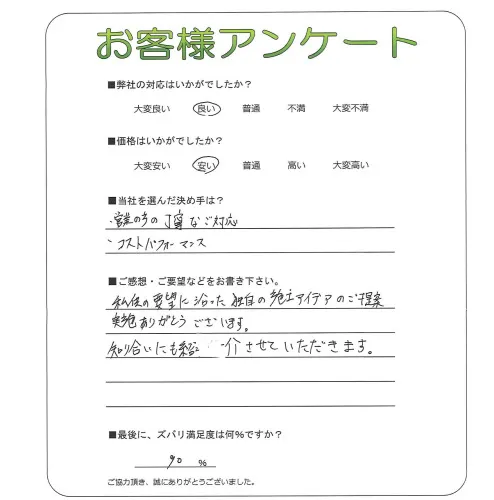 お客様アンケート
■弊社の対応はいかがでしたか？
大変良い 良い 普通 不満 大変不満
■価格はいかがでしたか？
大変安い 安い 普通 高い 大変高い
■当社を選んだ決め手は？
・営業の方の丁寧なご対応
・コストパフォーマンス
■ご感想・ご要望などをお書き下さい。
私達の要望に沿った独自の施工アイデアのご提案
実施ありがとうございます。
知り合いにも紹介させていただきます。
■最後に、ズバリ満足度は何％ですか？
90 ％
ご協力頂き、誠にありがとうございました。